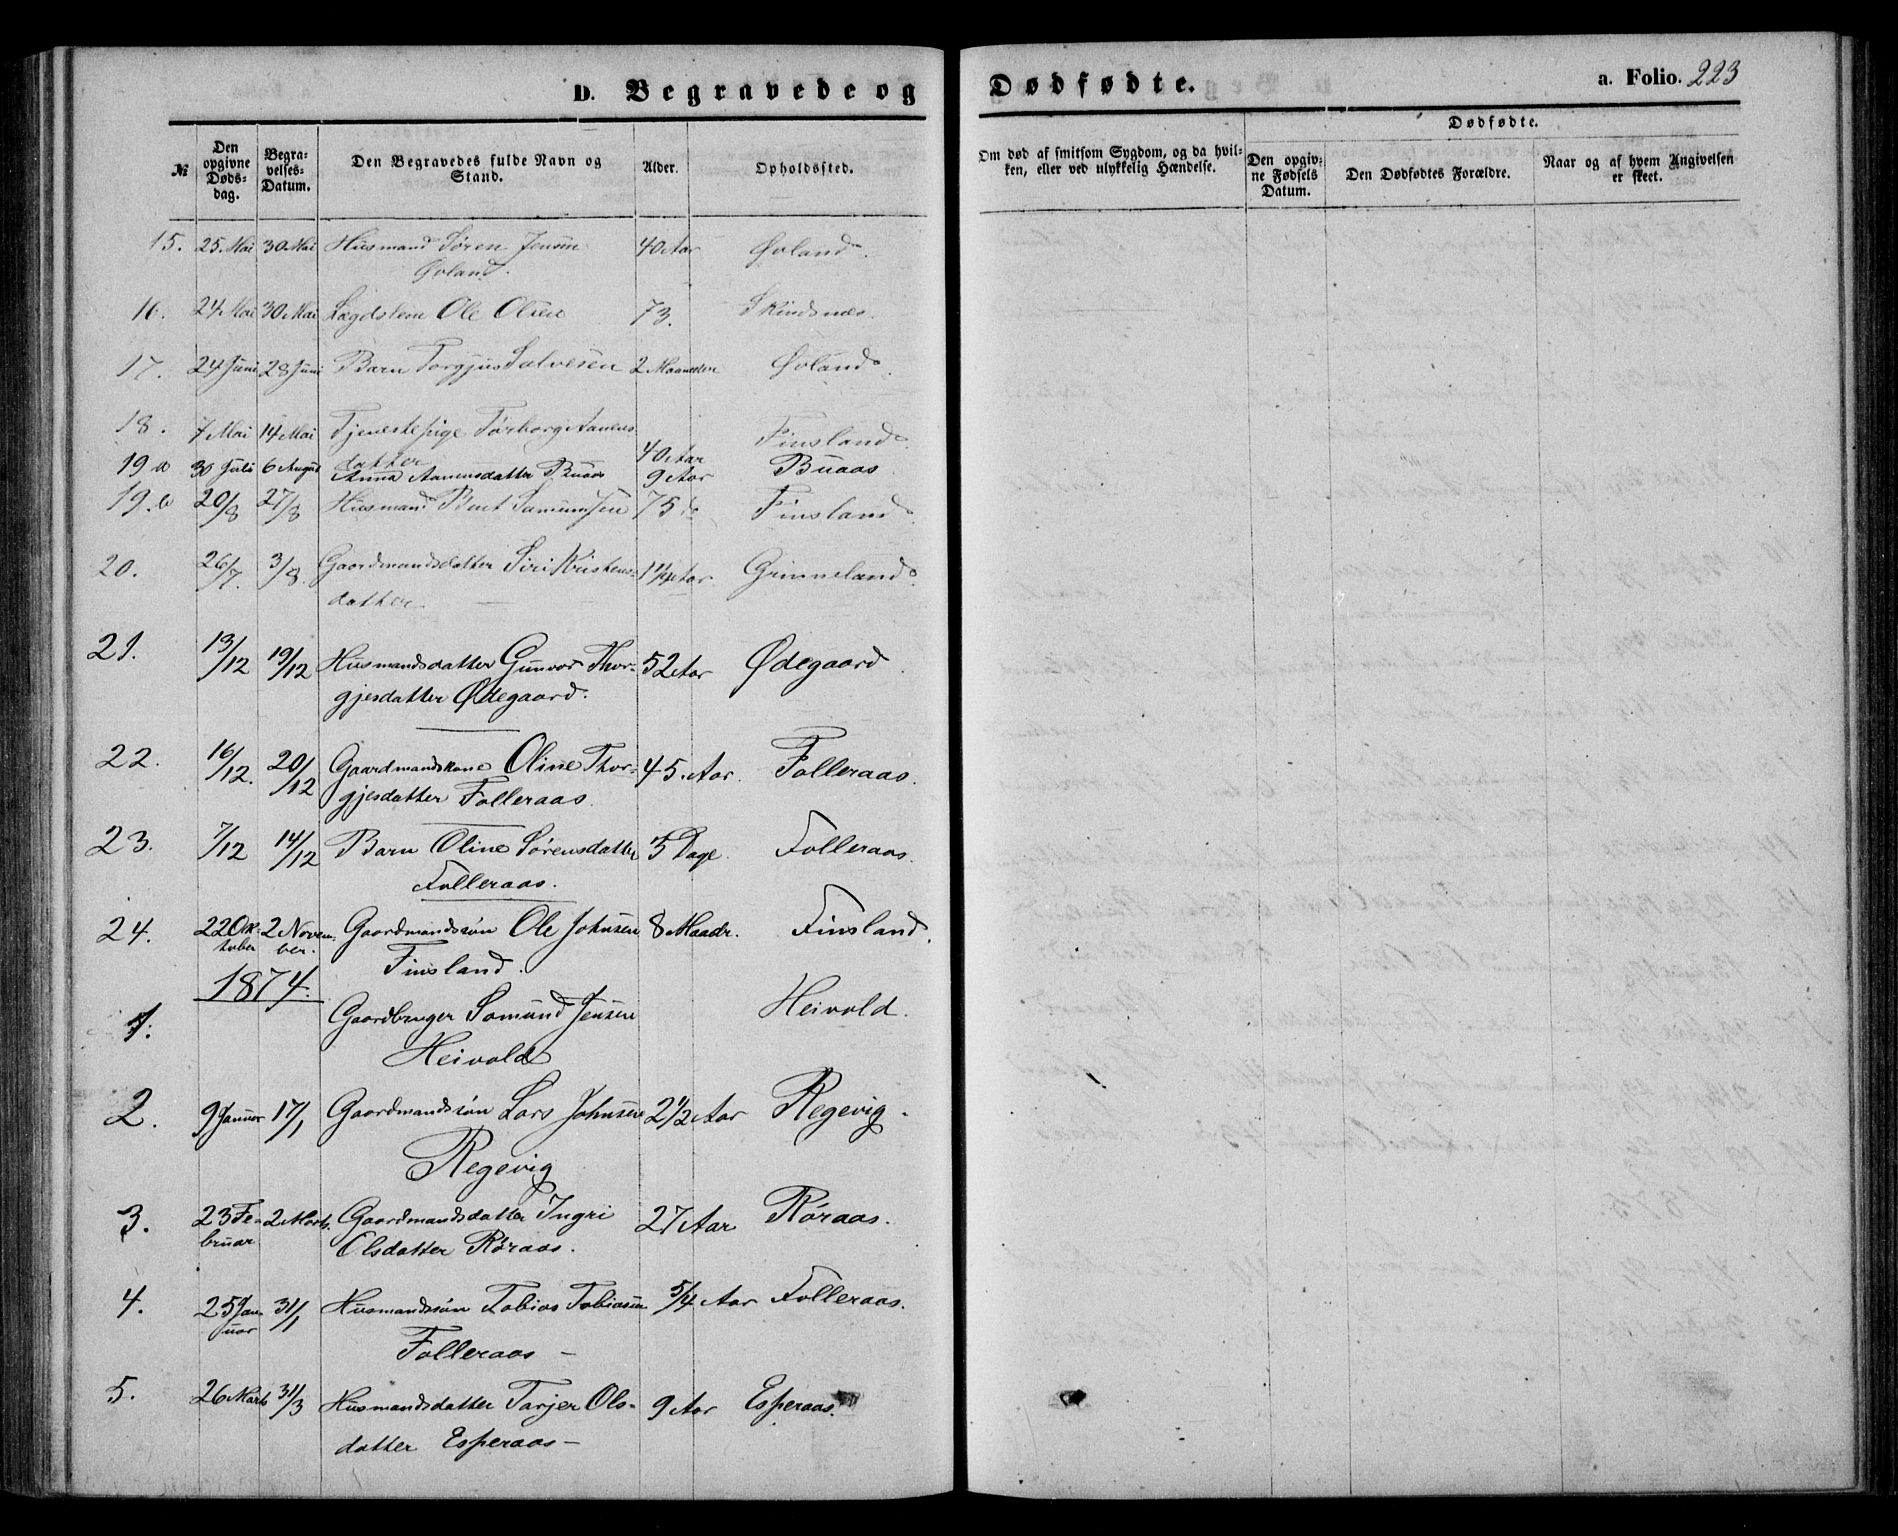 D. Begravede og Dødfødte.
a. Folio. 223
№
Den opgivne Dødsdag.
Begravelses-Datum.
Den Begravedes fulde Navn og Stand.
Alder.
Opholdssted.
Om død af smitsom Sygdom, og da hvilken, eller ved ulykkelig Hændelse.
Dødfødte.
Den opgivne Fødsels Datum.
Den Dødfødtes Forældre.
Naar og af hvem Angivelsen er skeet.
15. 25. Mai 30 Mai Husmand Søren Jensen 40 Aar Øvland.
Øvland.
16. 24 Mai 30 Mai Lægdslem Ole Olsen 73. Skindsnes.
17. 24 Juni 28 Juni Barn Torgjus Salvesen 2 Maaneder Øvland.
18. 7 Mai 14 Mai Tjenestepige Tørborg Aanens- Finsland.
datter 40 Aar
19 a 30 Juli 6 August Anna Aanensdatter Buaas 9 Aar Buaas
19. b 20/8 27/8 Husmand Bent Samunsen 75 d: Finsland.
20. 26/7. 3/8. Gaardmandsdatter Siri Kristens- 1 1/4 Aar. Grimeland.
datter
21. 13/12 19/12 Husmandsdatter Gunvor Thor- 52 Aar Ødegaard.
gjesdatter Ødegaard.
22. 16/12. 20/12 Gaardmandskone Oline Thor- 45. Aar. Folleraas.
gjesdatter Folleraas.
23. 7/12 14/12 Barn Oline Sørensdatter 5 Dage. Folleraas.
Folleraas.
24. 22 Ok- 2 Novem- Gaardmandssøn Ole Johnsen 8 Maadr. Finsland.
tober ber. Finsland.
1874.
1. Gaardbruger Somund Jensen Heivold.
Heivold
2. 9 Januar 17/1 Gaardmandssøn Lars Johnsen 2 1/2 Aar Regevig.
Regevig
3. 23 Fe- 2 Marts. Gaardmandsdatter Ingri 27 Aar Røraas.
bruar Olsdatter Røraas.
4. 25 Jan- 31/1 Husmandssøn Tobias Tobiasen 5/4 Aar Folleraas.
uar
Folleraas –
5. 26 Marts 31/3 Husmandsdatter Tarjer Ols- 9 Aar Esperaas.
datter Esperaas –